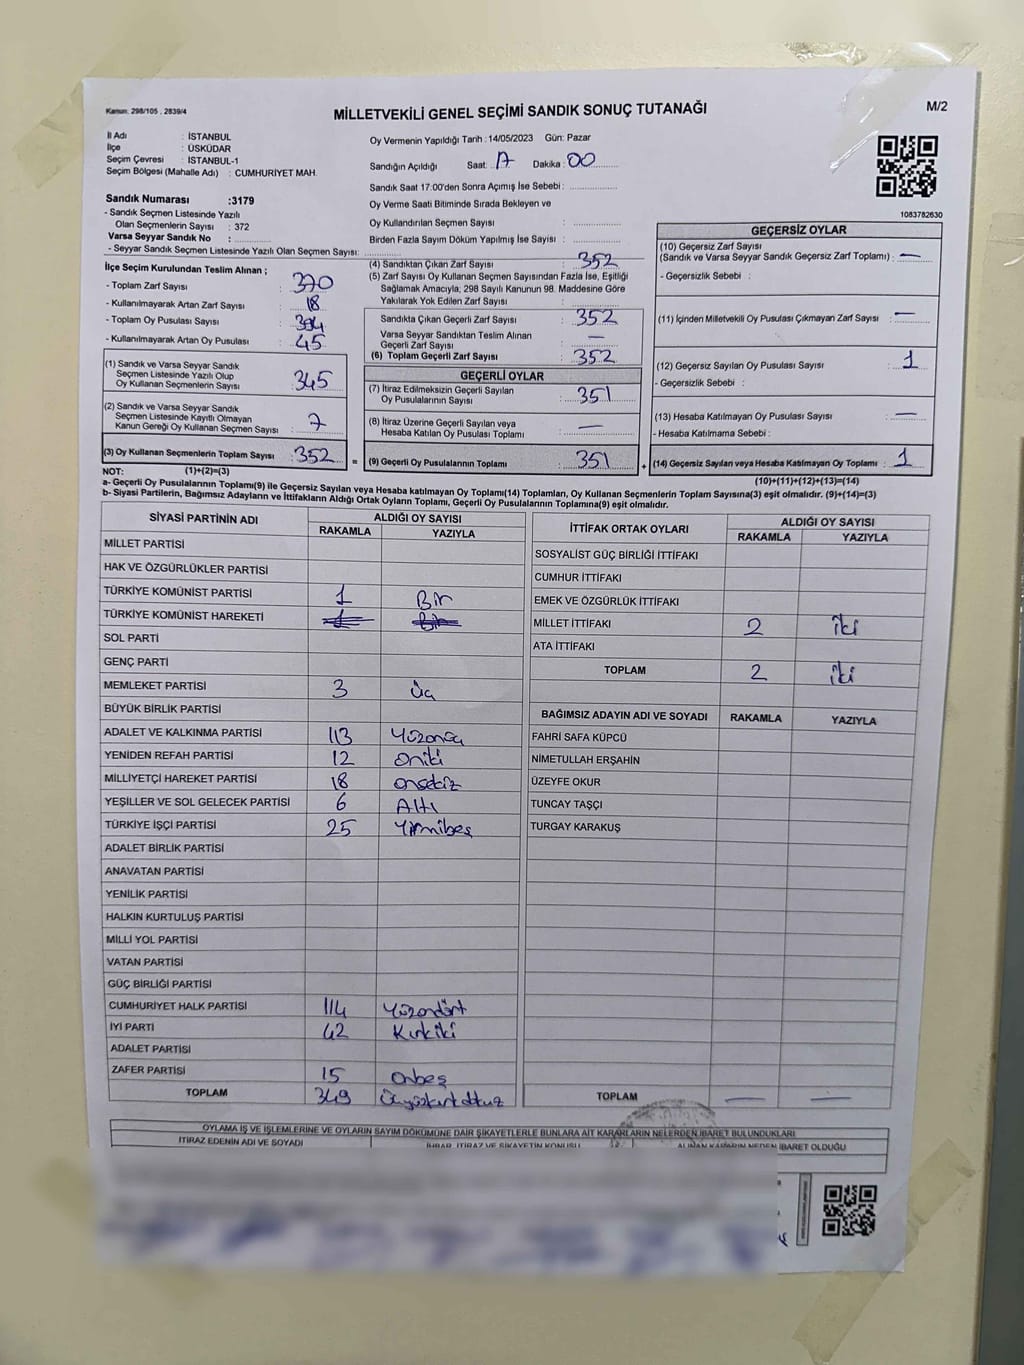 Kanun: 298/105 . 2839/4
MİLLETVEKİLİ GENEL SEÇİMİ SANDIK SONUÇ TUTANAĞI
M/2
İl Adı : İSTANBUL
İlçe : ÜSKÜDAR
Seçim Çevresi : İSTANBUL-1
Seçim Bölgesi (Mahalle Adı) : CUMHURİYET MAH.
Oy Vermenin Yapıldığı Tarih : 14/05/2023 Gün: Pazar
Sandığın Açıldığı Saat: 17 Dakika : 00
Sandık Saat 17:00'den Sonra Açımış İse Sebebi :
Oy Verme Saati Bitiminde Sırada Bekleyen ve
Oy Kullandırılan Seçmen Sayısı :
Birden Fazla Sayım Döküm Yapılmış İse Sayısı :
1083782630
Sandık Numarası :3179
- Sandık Seçmen Listesinde Yazılı
Olan Seçmenlerin Sayısı : 372
Varsa Seyyar Sandık No :
- Seyyar Sandık Seçmen Listesinde Yazılı Olan Seçmen Sayısı:
İlçe Seçim Kurulundan Teslim Alınan ;
- Toplam Zarf Sayısı : 370
- Kullanılmayarak Artan Zarf Sayısı : 18
- Toplam Oy Pusulası Sayısı :
- Kullanılmayarak Artan Oy Pusulası : 45
(1) Sandık ve Varsa Seyyar Sandık
Seçmen Listesinde Yazılı Olup
Oy Kullanan Seçmenlerin Sayısı : 345
(2) Sandık ve Varsa Seyyar Sandık
Seçmen Listesinde Kayıtlı Olmayan
Kanun Gereği Oy Kullanan Seçmen Sayısı : 7
(3) Oy Kullanan Seçmenlerin Toplam Sayısı : 352
(4) Sandıktan Çıkan Zarf Sayısı : 352
(5) Zarf Sayısı Oy Kullanan Seçmen Sayısından Fazla İse, Eşitliği
Sağlamak Amacıyla; 298 Sayılı Kanunun 98. Maddesine Göre
Yakılarak Yok Edilen Zarf Sayısı :
Sandıkta Çıkan Geçerli Zarf Sayısı : 352
Varsa Seyyar Sandıktan Teslim Alınan
Geçerli Zarf Sayısı : —
(6) Toplam Geçerli Zarf Sayısı : 352
GEÇERLİ OYLAR
(7) İtiraz Edilmeksizin Geçerli Sayılan
Oy Pusulalarının Sayısı : 351
(8) İtiraz Üzerine Geçerli Sayılan veya
Hesaba Katılan Oy Pusulası Toplamı : —
(9) Geçerli Oy Pusulalarının Toplamı : 351
GEÇERSİZ OYLAR
(10) Geçersiz Zarf Sayısı
(Sandık ve Varsa Seyyar Sandık Geçersiz Zarf Toplamı) : —
- Geçersizlik Sebebi :
(11) İçinden Milletvekili Oy Pusulası Çıkmayan Zarf Sayısı : —
(12) Geçersiz Sayılan Oy Pusulası Sayısı : 1
- Geçersizlik Sebebi :
(13) Hesaba Katılmayan Oy Pusulası Sayısı : —
- Hesaba Katılmama Sebebi :
(14) Geçersiz Sayılan veya Hesaba Katılmayan Oy Toplamı : 1
NOT: (1)+(2)=(3)
(10)+(11)+(12)+(13)=(14)
a- Geçerli Oy Pusulalarının Toplamı(9) ile Geçersiz Sayılan veya Hesaba katılmayan Oy Toplamı(14) Toplamları, Oy Kullanan Seçmenlerin Toplam Sayısına(3) eşit olmalıdır. (9)+(14)=(3)
b- Siyasi Partilerin, Bağımsız Adayların ve İttifakların Aldığı Ortak Oyların Toplamı, Geçerli Oy Pusulalarının Toplamına(9) eşit olmalıdır.
SİYASİ PARTİNİN ADI ALDIĞI OY SAYISI
RAKAMLA YAZIYLA
MİLLET PARTİSİ
HAK VE ÖZGÜRLÜKLER PARTİSİ
TÜRKİYE KOMÜNİST PARTİSİ 1 Bir
TÜRKİYE KOMÜNİST HAREKETİ 1 Bir
SOL PARTİ
GENÇ PARTİ
MEMLEKET PARTİSİ 3 Üç
BÜYÜK BİRLİK PARTİSİ
ADALET VE KALKINMA PARTİSİ 113 Yüzonüç
YENİDEN REFAH PARTİSİ 12 oniki
MİLLİYETÇİ HAREKET PARTİSİ 18 onsekiz
YEŞİLLER VE SOL GELECEK PARTİSİ 6 Altı
TÜRKİYE İŞÇİ PARTİSİ 25 Yirmibeş
ADALET BİRLİK PARTİSİ
ANAVATAN PARTİSİ
YENİLİK PARTİSİ
HALKIN KURTULUŞ PARTİSİ
MİLLİ YOL PARTİSİ
VATAN PARTİSİ
GÜÇ BİRLİĞİ PARTİSİ
CUMHURİYET HALK PARTİSİ 114 Yüzondört
İYİ PARTİ 42 Kırkiki
ADALET PARTİSİ
ZAFER PARTİSİ 15 Onbeş
TOPLAM 349 Üçyüzkırkdokuz
İTTİFAK ORTAK OYLARI ALDIĞI OY SAYISI
RAKAMLA YAZIYLA
SOSYALİST GÜÇ BİRLİĞİ İTTİFAKI
CUMHUR İTTİFAKI
EMEK VE ÖZGÜRLÜK İTTİFAKI
MİLLET İTTİFAKI 2 iki
ATA İTTİFAKI
TOPLAM 2 iki
BAĞIMSIZ ADAYIN ADI VE SOYADI RAKAMLA YAZIYLA
FAHRİ SAFA KÜPCÜ
NİMETULLAH ERŞAHİN
ÜZEYFE OKUR
TUNCAY TAŞÇI
TURGAY KARAKUŞ
TOPLAM — —
OYLAMA İŞ VE İŞLEMLERİNE VE OYLARIN SAYIM DÖKÜMÜNE DAİR ŞİKAYETLERLE BUNLARA AİT KARARLARIN NELERDEN İBARET BULUNDUKLARI
İTİRAZ EDENİN ADI VE SOYADI İHBAR, İTİRAZ VE ŞİKAYETİN KONUSU ALINAN KARARIN NEDEN İBARET OLDUĞU